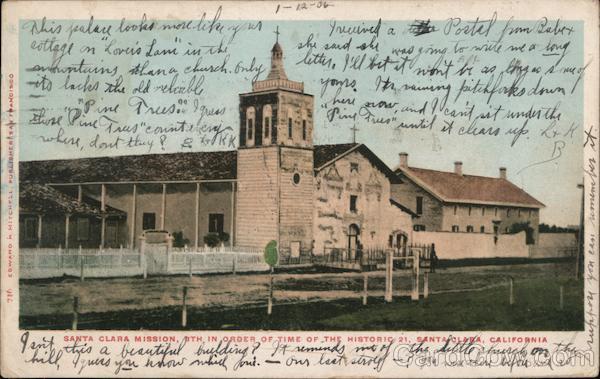 1-12-06
This palace looks more like your
cottage on "Lover's Lane" in the
mountains than a church. Only
its lacks the old reliable
"Pine Trees". I guess
those "Pine Trees" count every
where, don't they?
I received a Postal from Babe
she said she was going to write me a long
letter. I'll bet it won't be as long as some of
yours. It's raining pitchforks down
here now, and I can't sit under the
Pine Trees" until it clears up.
EDWARD H. MITCHELL, PUBLISHER, SAN FRANCISCO
736
SANTA CLARA MISSION, 8TH IN ORDER OF TIME OF THE HISTORIC 21, SANTA CLARA, CALIFORNIA
Isn't this a beautiful building? It reminds me of the little church on the
hill, I guess you know which one — our last
suppose you can remember it
CardCow.com